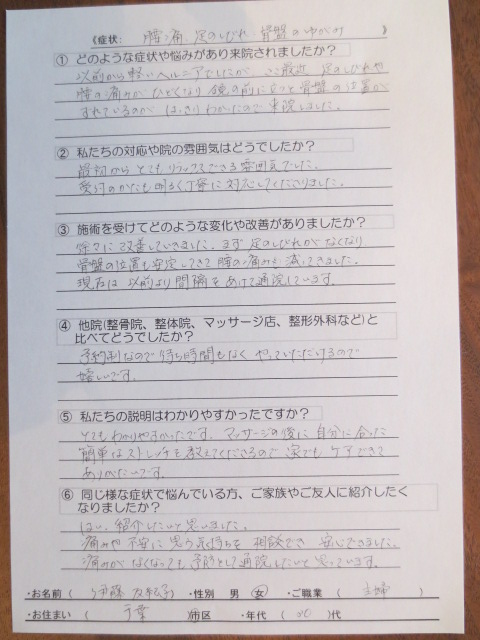 《症状: 腰痛、足のしびれ、骨盤のゆがみ 》
① どのような症状や悩みがあり来院されましたか？
以前から軽いヘルニアでしたが、ここ最近 足のしびれや
腰の痛みが ひどくなり 鏡の前に立つと 骨盤の位置が
ずれているのが はっきりわかったので 来院しました。
② 私たちの対応や院の雰囲気はどうでしたか？
最初から とても リラックスできる 雰囲気でした。
受付のかたも 明るく丁寧に 対応してくださりました。
③ 施術を受けてどのような変化や改善がありましたか？
徐々に 改善していきました。まず 足のしびれがなくなり
骨盤の位置も安定してきて 腰の痛みも 減ってきました。
現在は 以前より 間隔を あけて通院しています。
④ 他院(整骨院、整体院、マッサージ店、整形外科など)と
比べてどうでしたか？
予約制なので 待ち時間もなく やっていただけるので
嬉しいです。
⑤ 私たちの説明はわかりやすかったですか？
とても わかりやすかったです。マッサージの後に 自分に合った
簡単なストレッチを 教えてくださるので 家でも ケアできて
ありがたいです。
⑥ 同じ様な症状で悩んでいる方、ご家族やご友人に紹介したく
なりましたか？
はい、紹介したいと 思いました。
痛みや 不安に 思う気持ちを 相談でき 安心できました。
痛みが なくなっても 予防として通院したいと 思っています。
・お名前 ( 伊藤 子 ) ・性別 男 女 ・ご職業 ( 主婦 )
・お住まい ( 千葉 )市区 ・年代 ( 20 )代